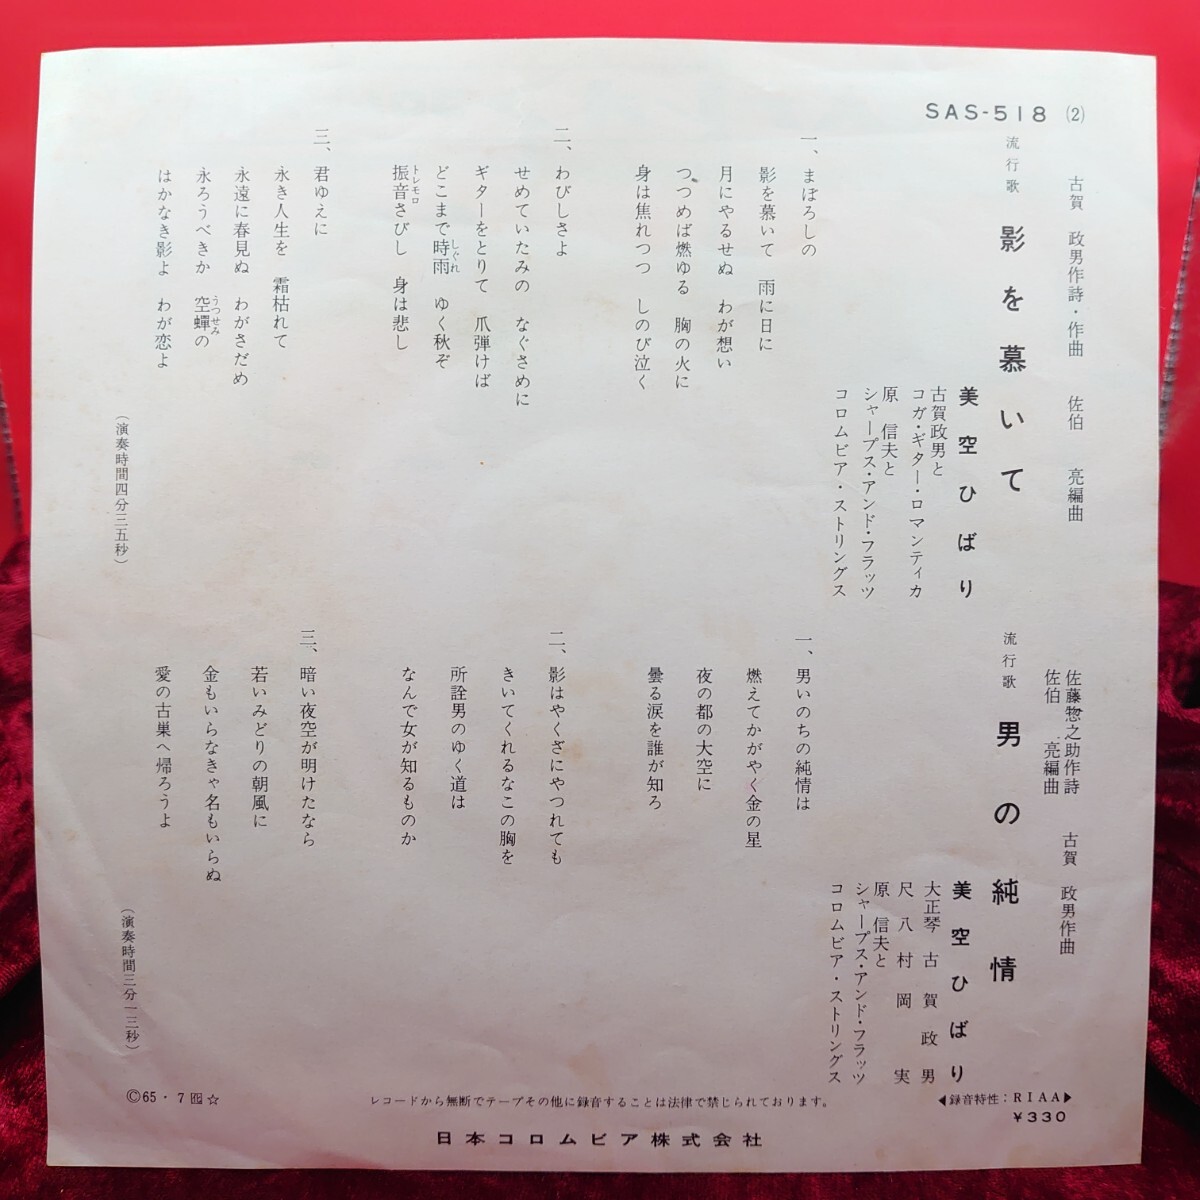 SAS-518 (2)
古賀 政男作詩・作曲 佐伯 亮編曲
流行歌 影を慕いて
美空ひばり
古賀政男と
コガ・ギター・ロマンティカ
原 信夫と
シャープス・アンド・フラッツ
コロムビア・ストリングス
一、まぼろしの
影を慕いて 雨に日に
月にやるせぬ わが想い
つつめば燃ゆる 胸の火に
身は焦れつつ しのび泣く
二、わびしさよ
せめていたみの なぐさめに
ギターをとりて 爪弾けば
どこまで時雨 ゆく秋ぞ
しぐれ
振音さびし 身は悲し
トレモロ
三、君ゆえに
永き人生を 霜枯れて
永遠に春見ぬ わがさだめ
永ろうべきか 空蟬の
うつせみ
はかなき影よ わが恋よ
（演奏時間四分三五秒）
佐藤惣之助作詩 古賀 政男作曲
佐伯 亮編曲
流行歌 男の純情
美空ひばり
大正琴 古賀政男
尺八 村岡 実
原 信夫と
シャープス・アンド・フラッツ
コロムビア・ストリングス
一、男いのちの純情は
燃えてかがやく金の星
夜の都の大空に
曇る涙を誰が知ろ
二、影はやくざにやつれても
きいてくれるなこの胸を
所詮男のゆく道は
なんで女が知るものか
三、暗い夜空が明けたなら
若いみどりの朝風に
金もいらなきゃ名もいらぬ
愛の古巣へ帰ろうよ
（演奏時間三分一三秒）
◀録音特性：RIAA▶
¥330
©65・7 ☆
レコードから無断でテープその他に録音することは法律で禁じられております。
日本コロムビア株式会社